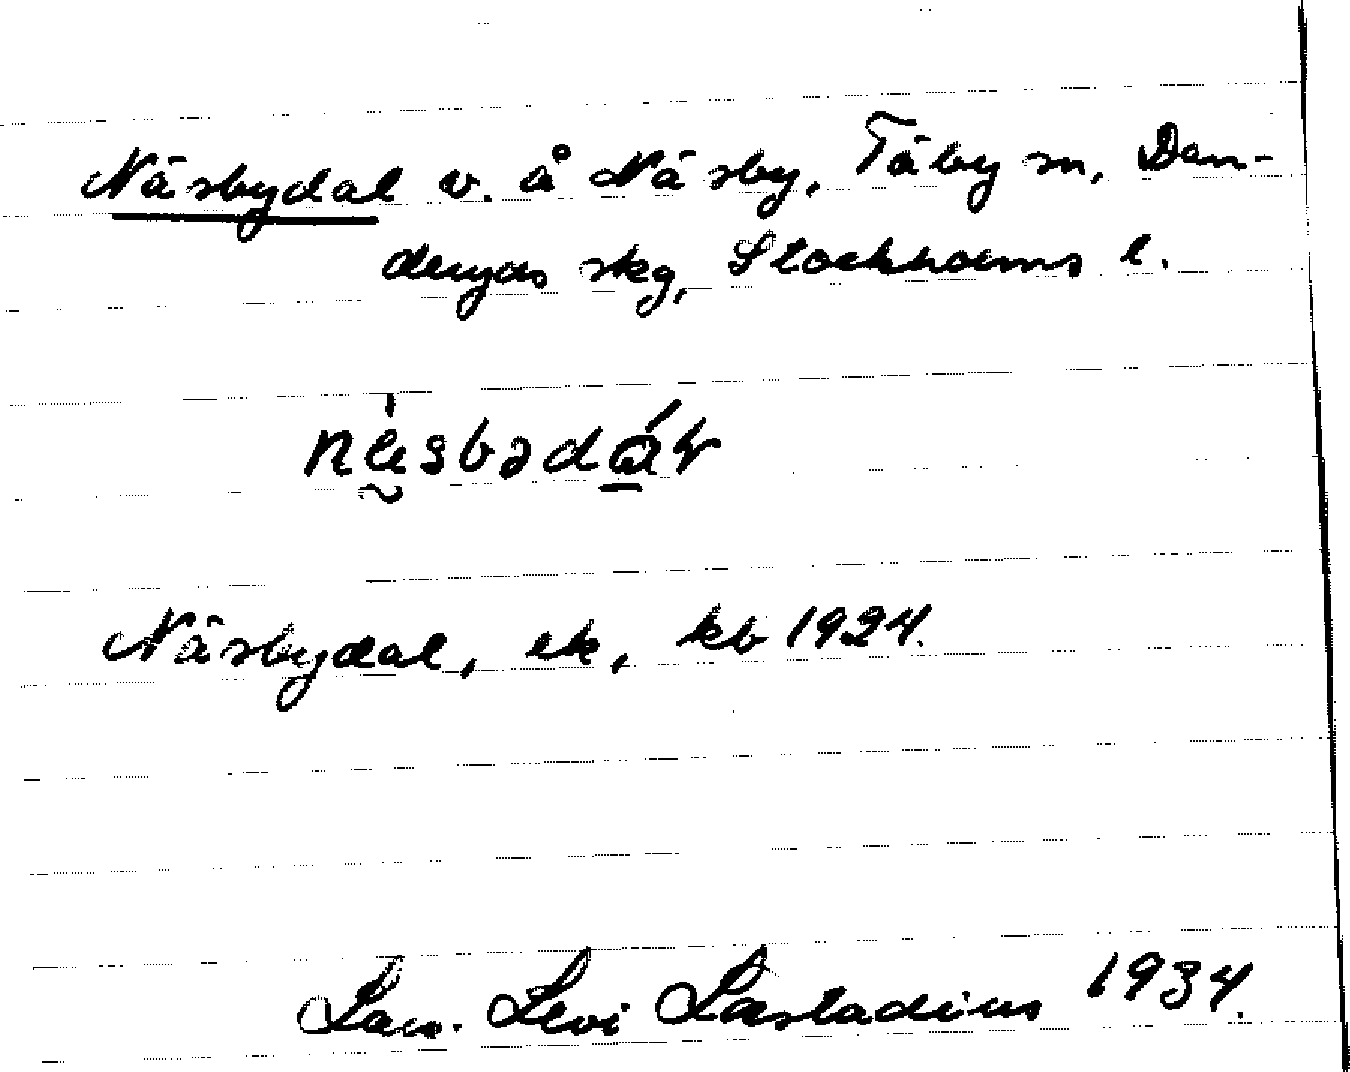 Näsbydal v. å Näsby, Täby sn, Dan-
deryds skg, Stockholms l.
Näsbydal, ek, kb 1924.
Lars Levi Læstadius 1934.